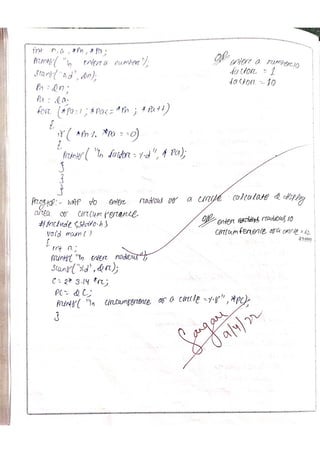 int n, a, *Pn, *Pa;
Printf("\n enter a number");
Scanf("%d", &n);
Pn = &n;
Pa = &a;
for (*Pa=1; *Pa<=*Pn; *Pa++)
{
if (*Pn % *Pa == 0)
{
Printf("\n factor = %d", *Pa);
}
}
}
O/P enter a number 10
factor = 1
factor = 10
:- WAP to enter radius of a circle calculate & display
area or circumference
#include <stdio.h>
void main()
{
int r;
Printf("\n enter radius");
Scanf("%d", &r);
C = 2* 3.14 *r;
PC = &C;
Printf("\n circumference of a circle = %f", *PC);
}
O/P enter radius 10
circumference of a circle =